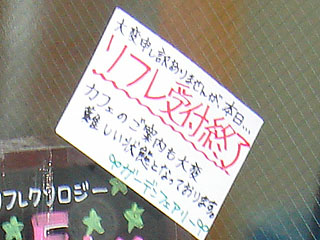 大変申し訳ありませんが、本日…
リフレ受付終了
カフェのご案内も大変
難しい状態となっております。
∞ガーデンフェアリー∞
フレクソロジー